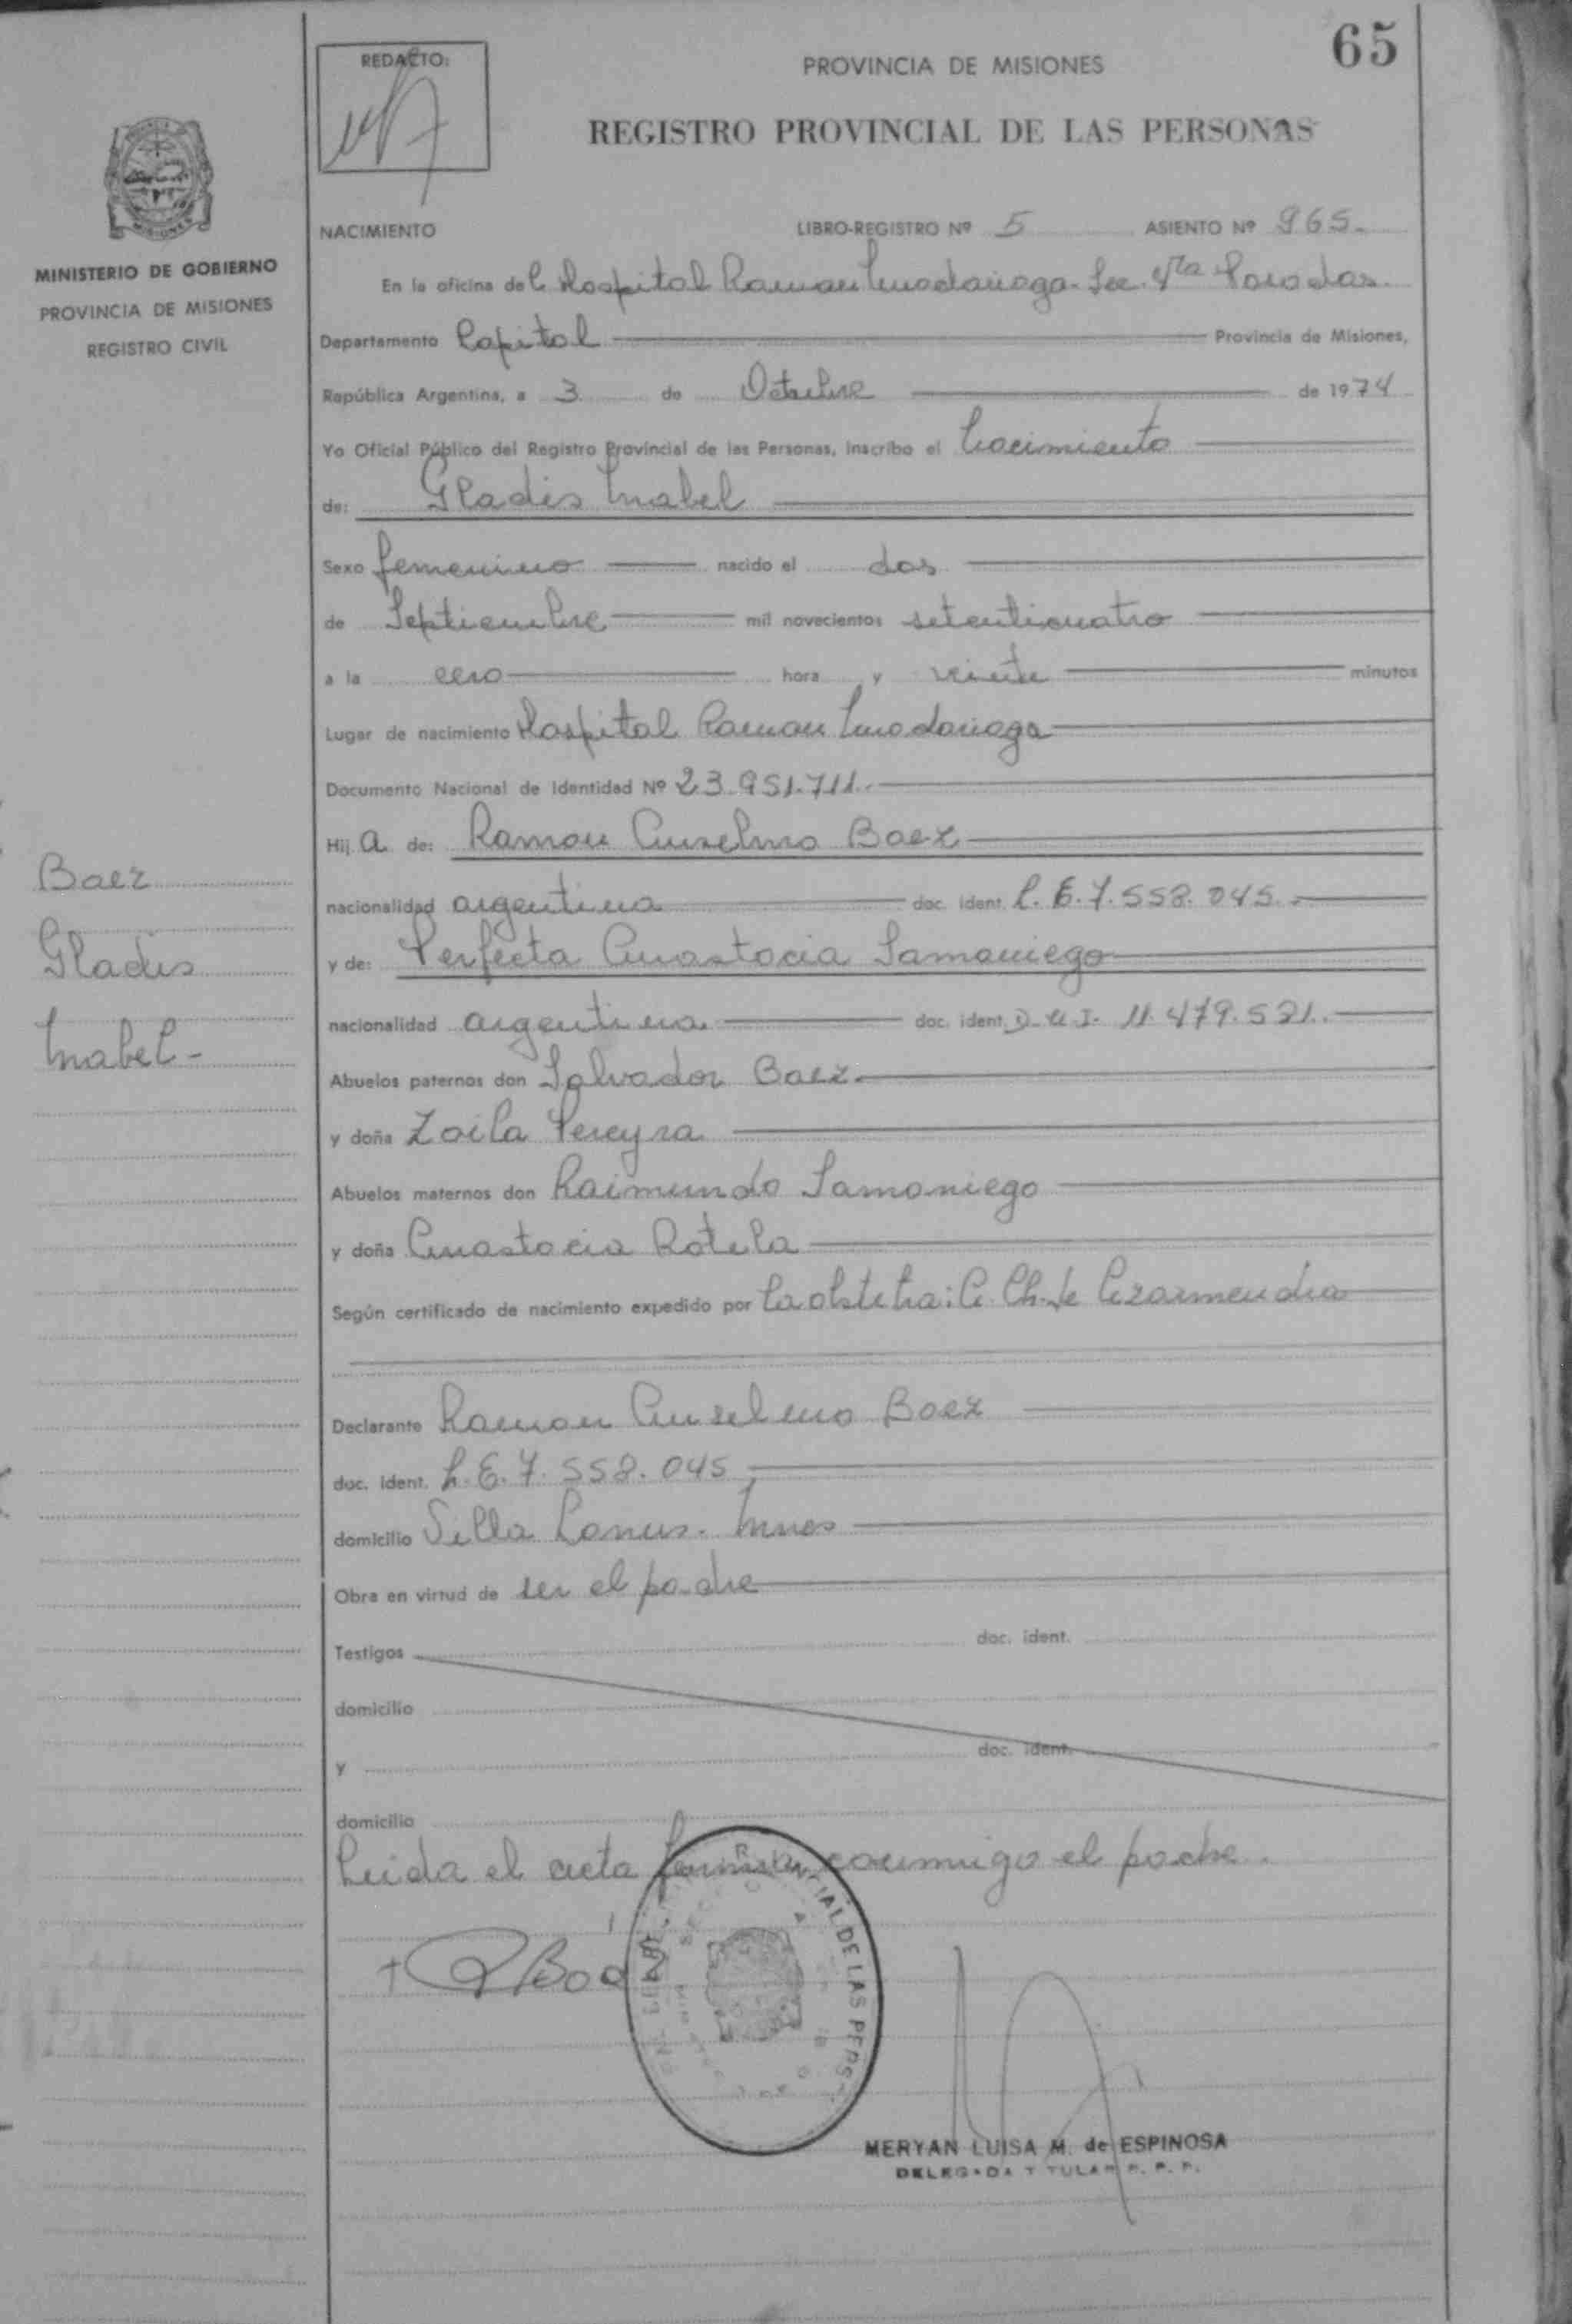 65
REDACTO:
PROVINCIA DE MISIONES
REGISTRO PROVINCIAL DE LAS PERSONAS
MISIONES
MINISTERIO DE GOBIERNO
PROVINCIA DE MISIONES
REGISTRO CIVIL
NACIMIENTO LIBRO-REGISTRO Nº 5 ASIENTO Nº 965.
En la oficina del Hospital Ramon Madariaga - Sec. 4ta Posadas.
Departamento Capital Provincia de Misiones,
República Argentina, a 3 de Octubre de 1974
Yo Oficial Público del Registro Provincial de las Personas, inscribo el Nacimiento
de: Gladis Mabel
Sexo femenino nacido el dos
de Septiembre mil novecientos setenticuatro
a la cero hora y veinte minutos
Lugar de nacimiento Hospital Ramon Madariaga
Documento Nacional de Identidad Nº 23.951.711.
Hij a de: Ramon Anselmo Baez
nacionalidad argentina doc. ident. L.E. 7.558.045.
y de: Perfecta Anastacia Samaniego
nacionalidad argentina doc. ident. D.U.I. 11.479.521.
Abuelos paternos don Salvador Baez.
y doña Zoila Pereyra
Abuelos maternos don Raimundo Samaniego
y doña Anastacia Rotela
Según certificado de nacimiento expedido por la obstetra: A. Ch. de Azarmendia
Declarante Ramon Anselmo Baez
doc. ident. L.E. 7.558.045
domicilio Villa Lanus. Mnes
Obra en virtud de ser el padre
Testigos doc. ident.
domicilio
y doc. ident.
domicilio
Leida el acta firman conmigo el padre.
Baez
Gladis
Mabel-
R Baez
CIAL DE LAS PERS
MERYAN LUISA M. de ESPINOSA
DELEGADA TITULAR R. P. P.